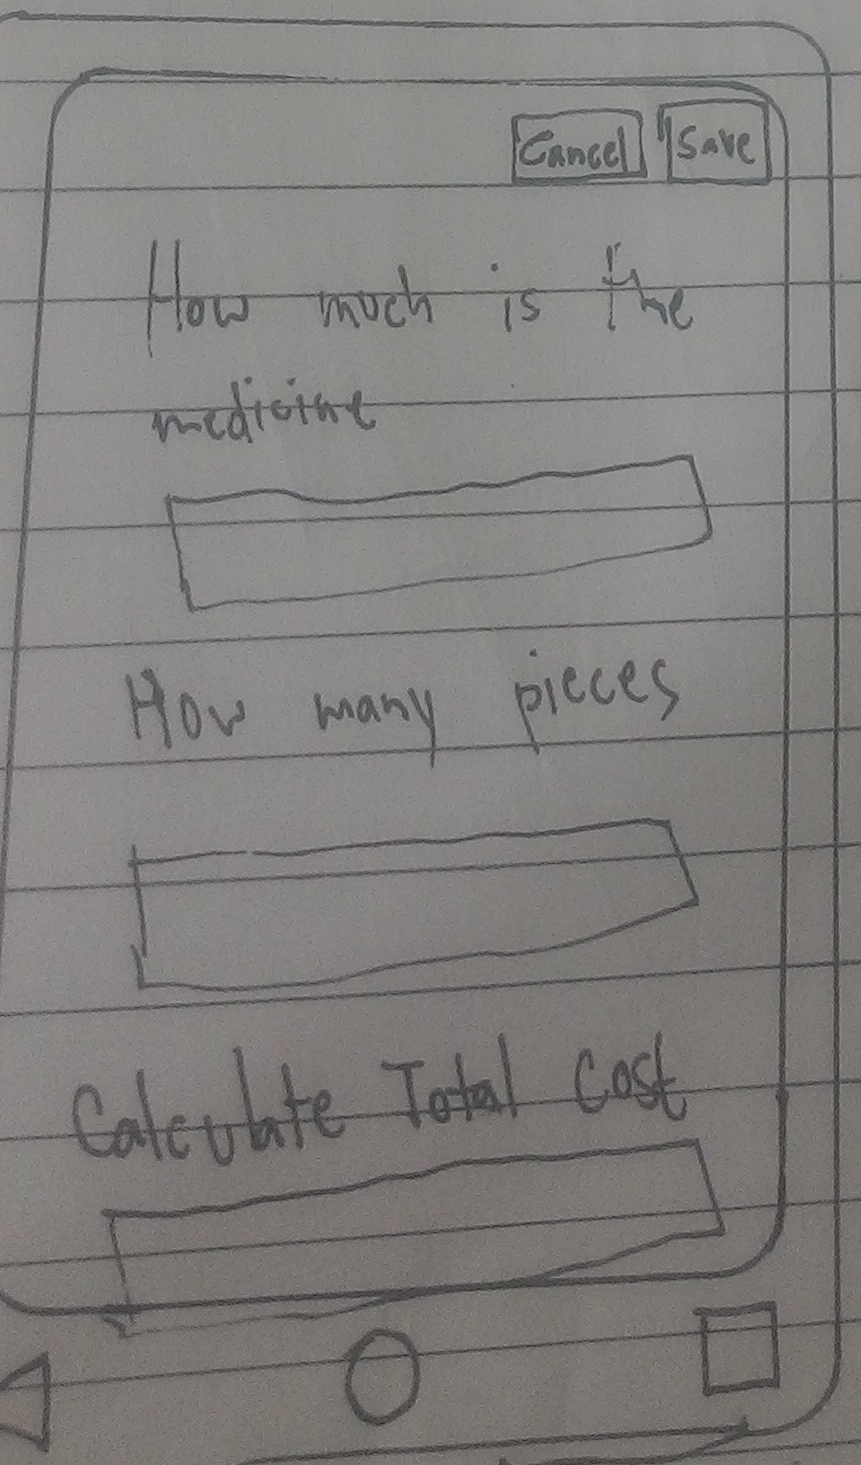 Cancel Save
How much is the
medicine
How many pieces
Calculate Total Cost